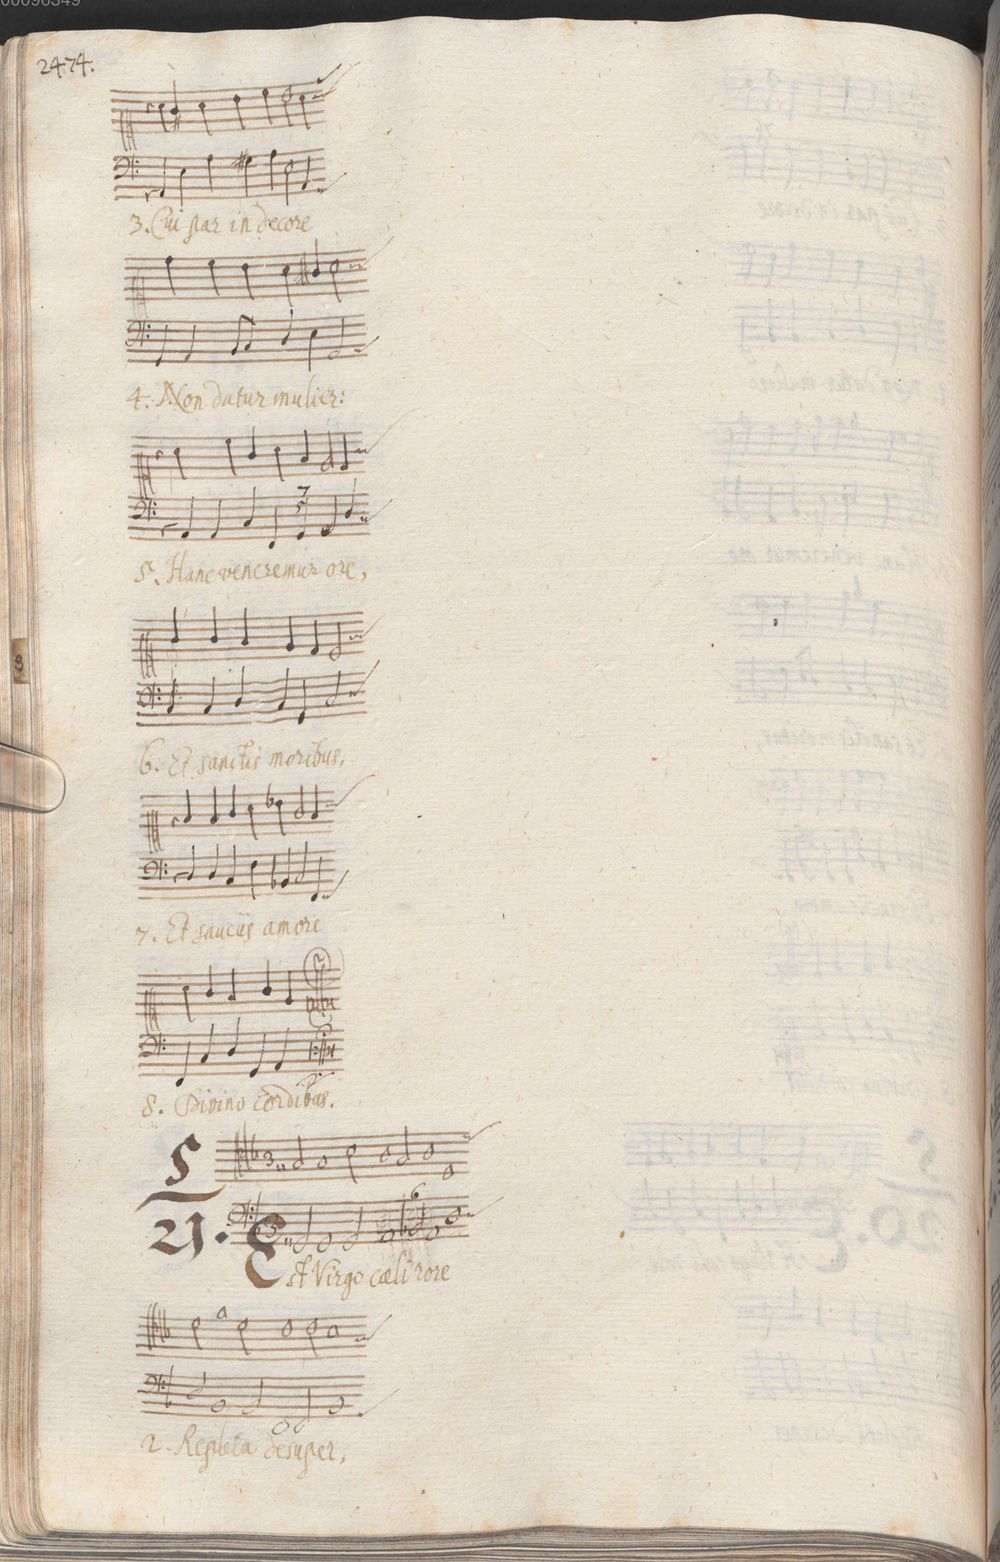 00096549
2474.
3. Cui par in decore
4. Non datur mulier:
7
5. Hanc veneremur ore,
8
6. Et sanctis moribus,
7. Et saucijs amore
8. Divino cordibus.
5
21. Est Virgo cæli rore
3
6
2. Repleta desuper,